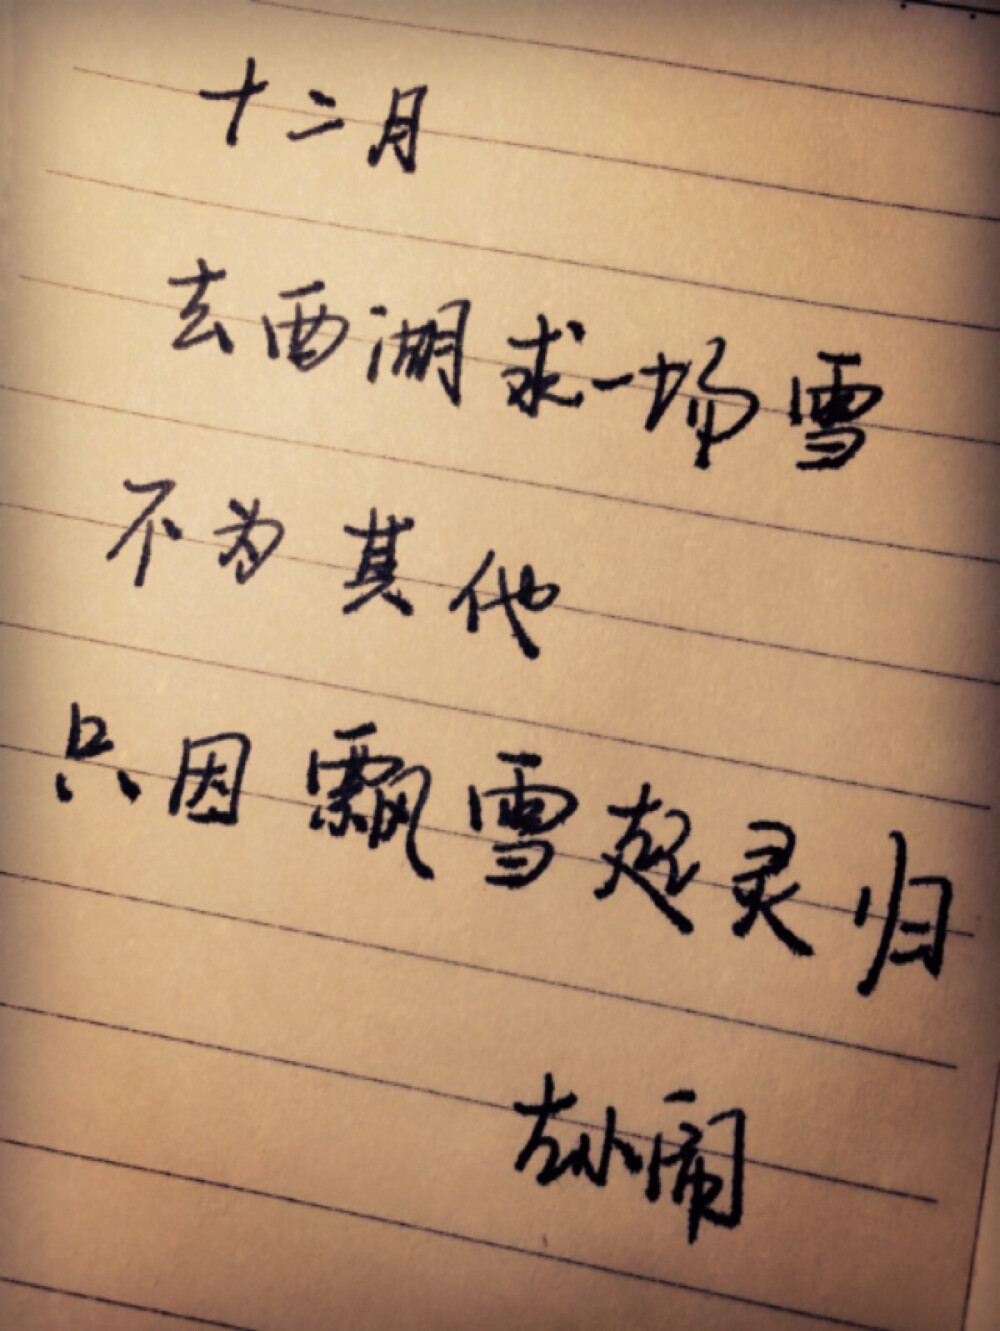 十二月
去西湖求一场雪
不为其他
只因飘雪起灵归
左小闹